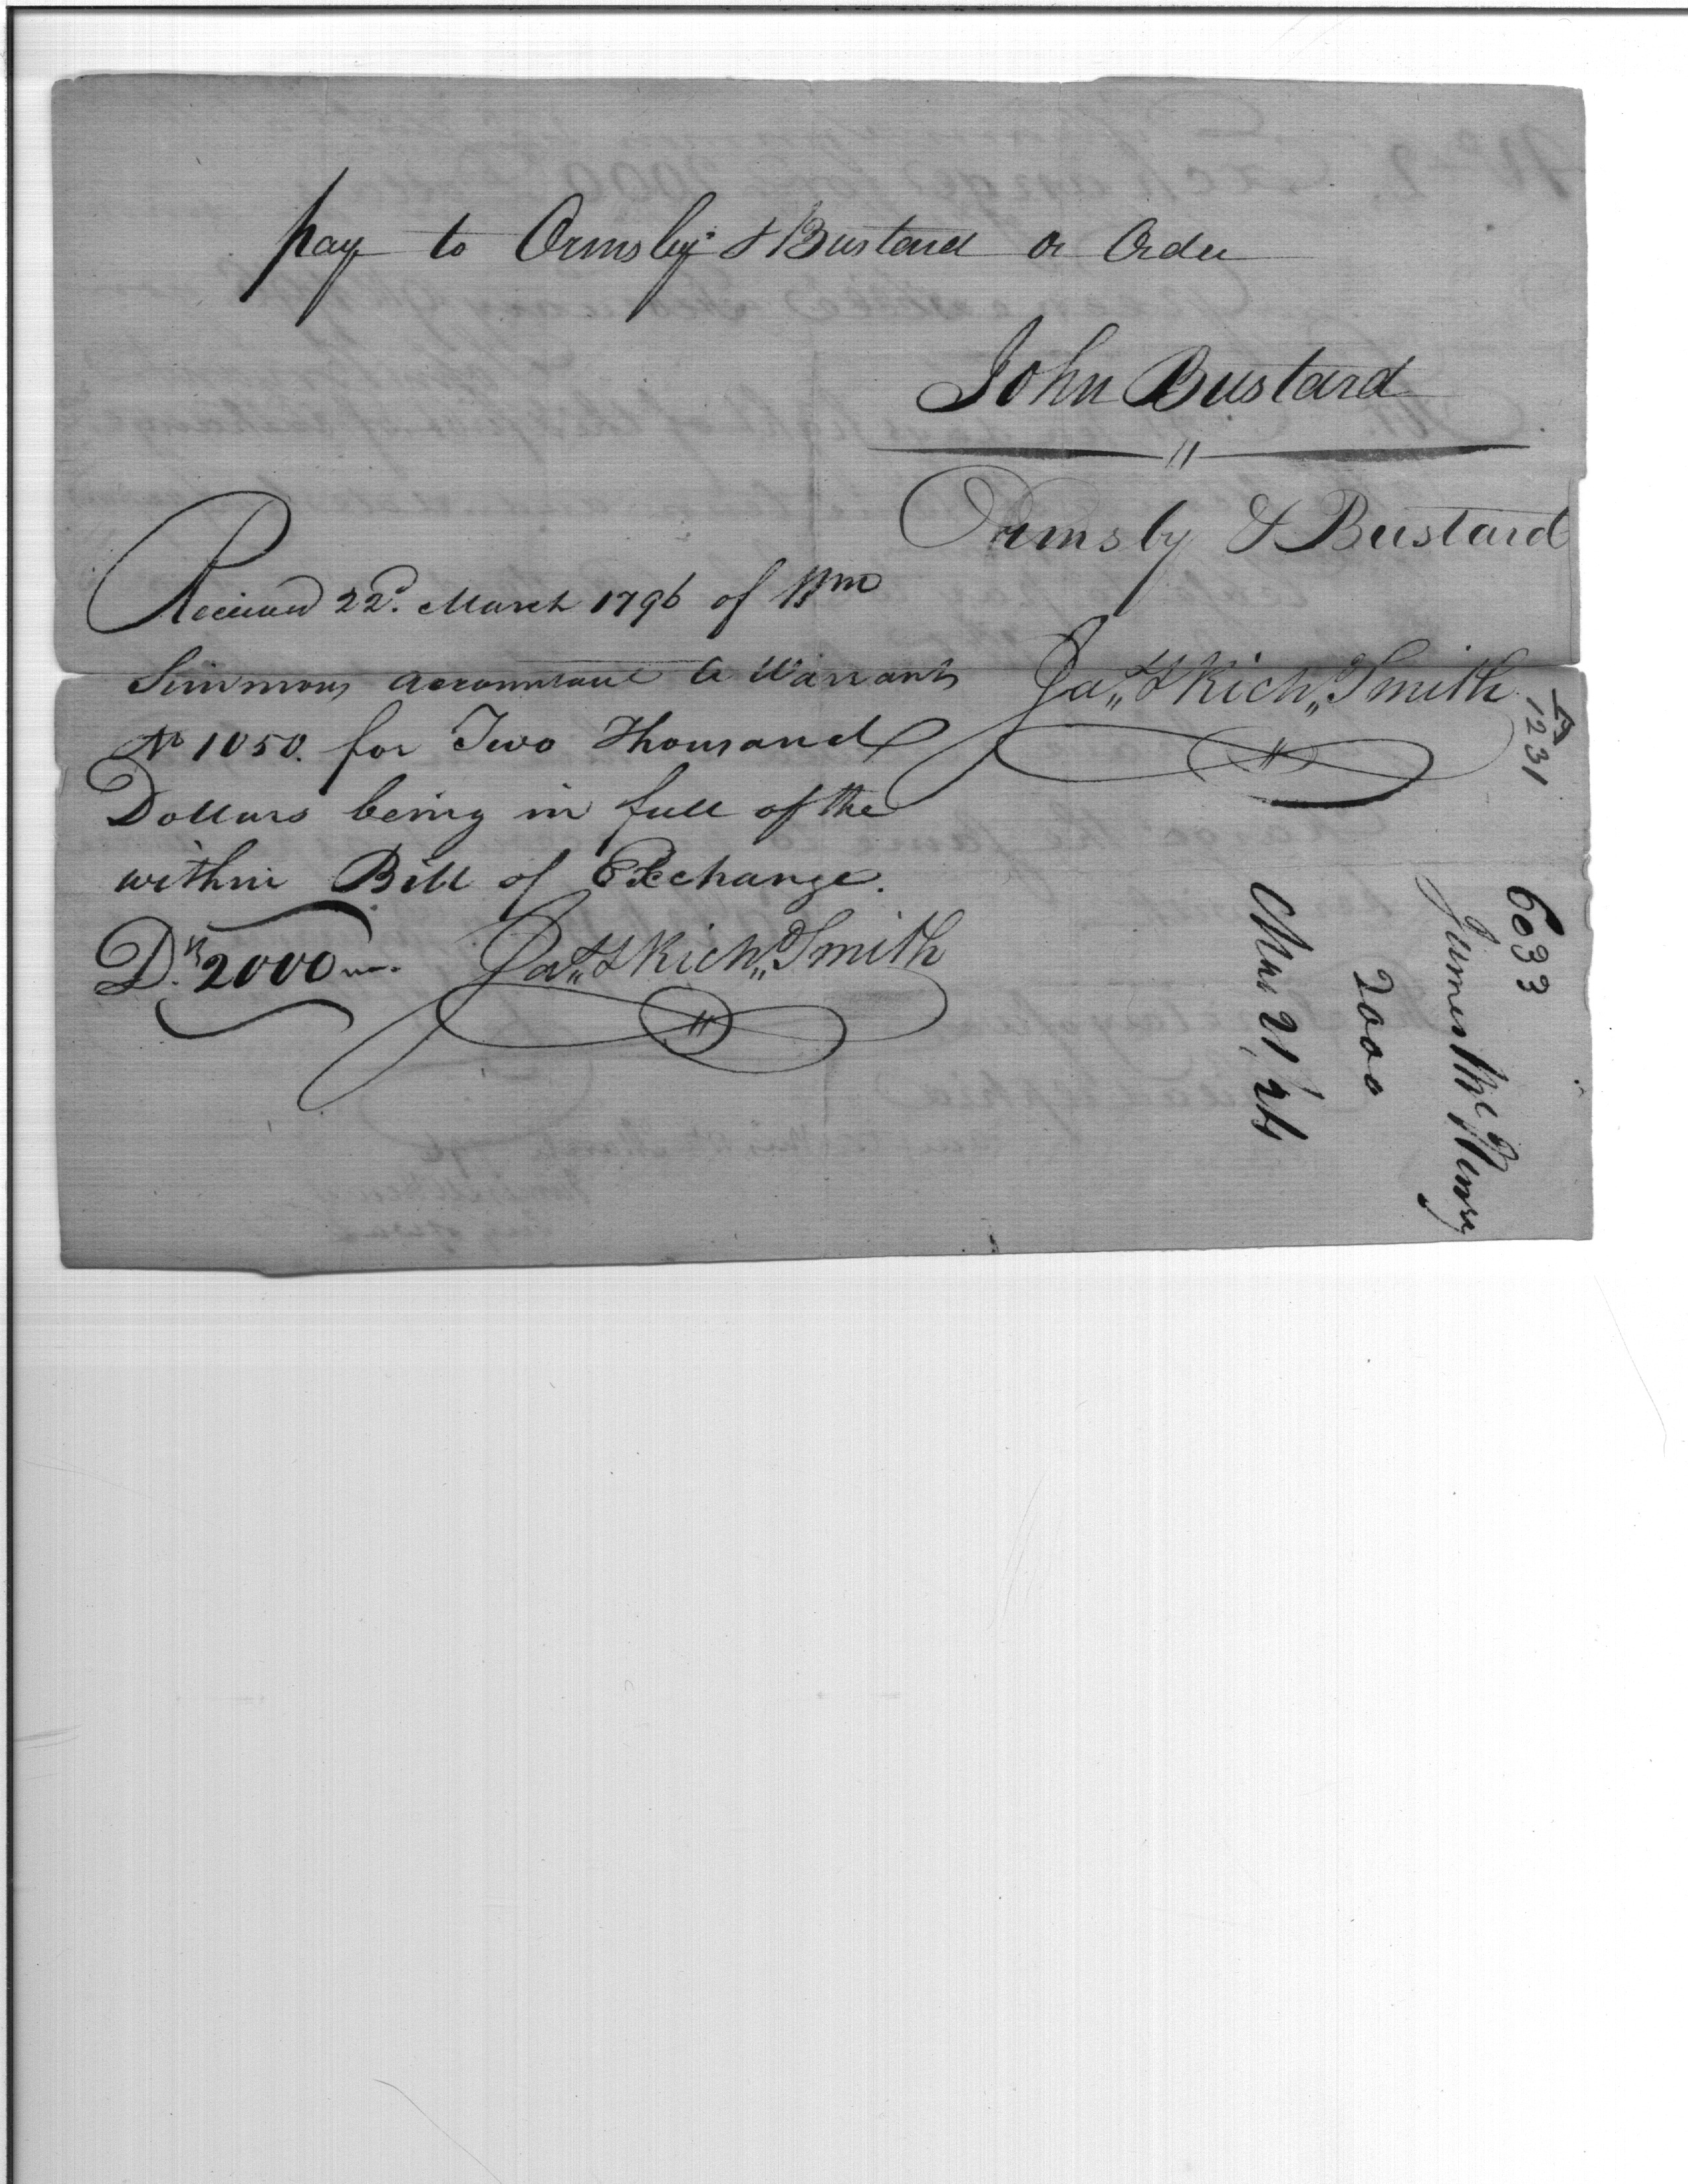 pay to Ormsby & Bustard or Order
John Bustard
Ormsby & Bustard
Jas,, & Rich,,d Smith
Received 22d. March 1796 of Wm
Simmons accountant a Warrant
No 1050. for Two Thousand
Dollars being in full of the
within Bill of Exchange.
Drs 2000
Jas,, & Rich,,d Smith
1231
6033
James McHenry
2000
Mar 21/96